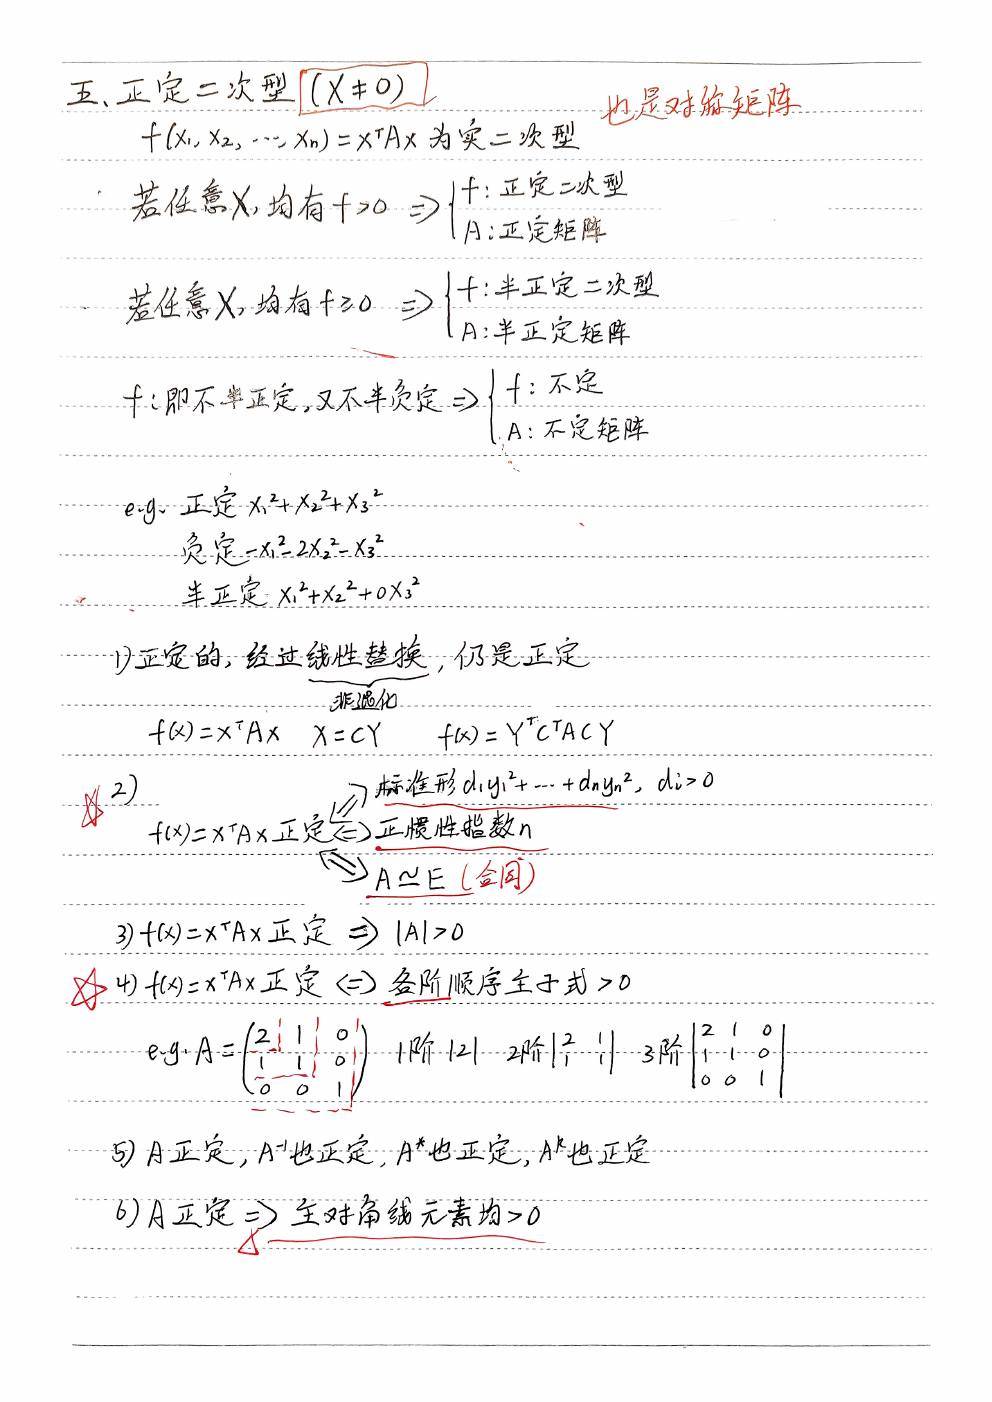 五、正定二次型 (X≠0)
也是对称矩阵
f(x₁, x₂, …, xₙ) = xᵀAx 为实二次型
若任意X, 均有 f>0 ⇒ { f: 正定二次型
A: 正定矩阵
若任意X, 均有 f≥0 ⇒ { f: 半正定二次型
A: 半正定矩阵
f: 即不半正定, 又不半负定 ⇒ { f: 不定
A: 不定矩阵
e.g. 正定 x₁²+x₂²+x₃²
负定 -x₁²-2x₂²-x₃²
半正定 x₁²+x₂²+0x₃²
1) 正定的, 经过线性替换, 仍是正定
非退化
f(x) = xᵀAx X = CY f(x) = YᵀCᵀACY
2) 标准形 d₁y₁²+…+dₙyₙ², di>0
f(x) = xᵀAx 正定 ⇔ 正惯性指数n
A≃E (合同)
3) f(x) = xᵀAx 正定 ⇒ |A|>0
4) f(x) = xᵀAx 正定 ⇔ 各阶顺序主子式>0
2 1 0 2 1 2 1 0
e.g. A = 1 1 0 1阶 |2| 2阶 1 1 3阶 1 1 0
0 0 1 0 0 1
5) A正定, A⁻¹也正定, A*也正定, Aᵏ也正定
6) A正定 ⇒ 主对角线元素均>0